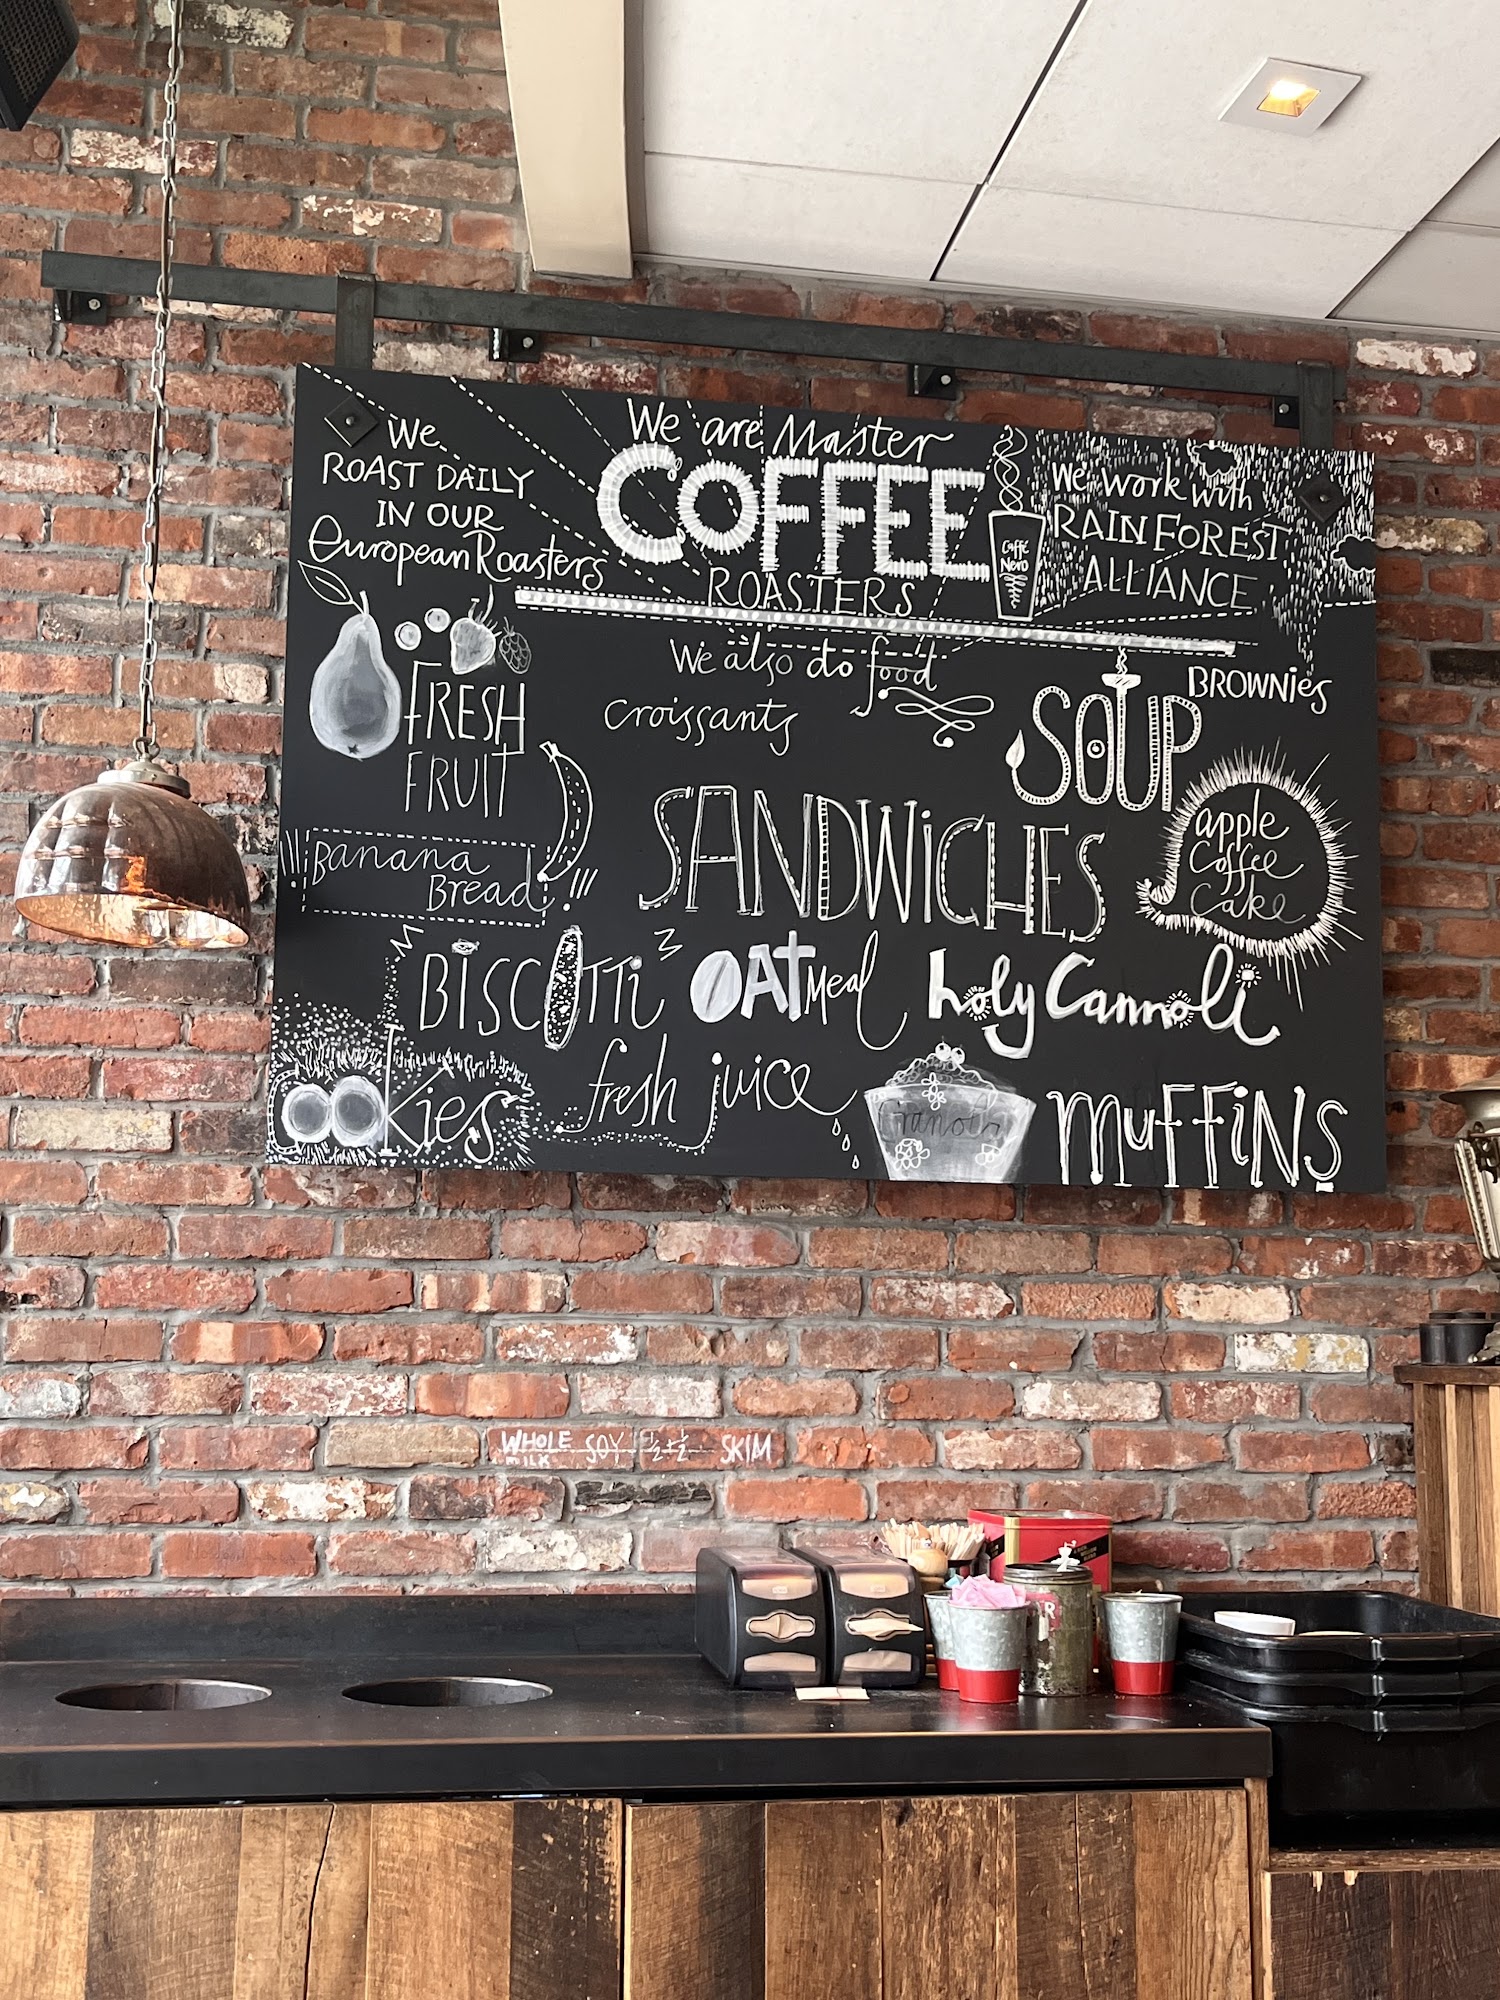 We
ROAST DAILY
IN OUR
european Roasters
We are Master
COFFEE
ROASTERS
Caffè
Nero
We work with
RAINFOREST
ALLIANCE
We also do food
croissants
FRESH
FRUIT
SOUP
BROWNies
SANDWiCHES
apple
Coffee
Cake
Banana
Bread
BiSCOTTi
OATmeal
holy Cannoli
COOkies
fresh juice
Granola
MUFFiNS
WHOLE SOY ½+½ SKIM
MILK